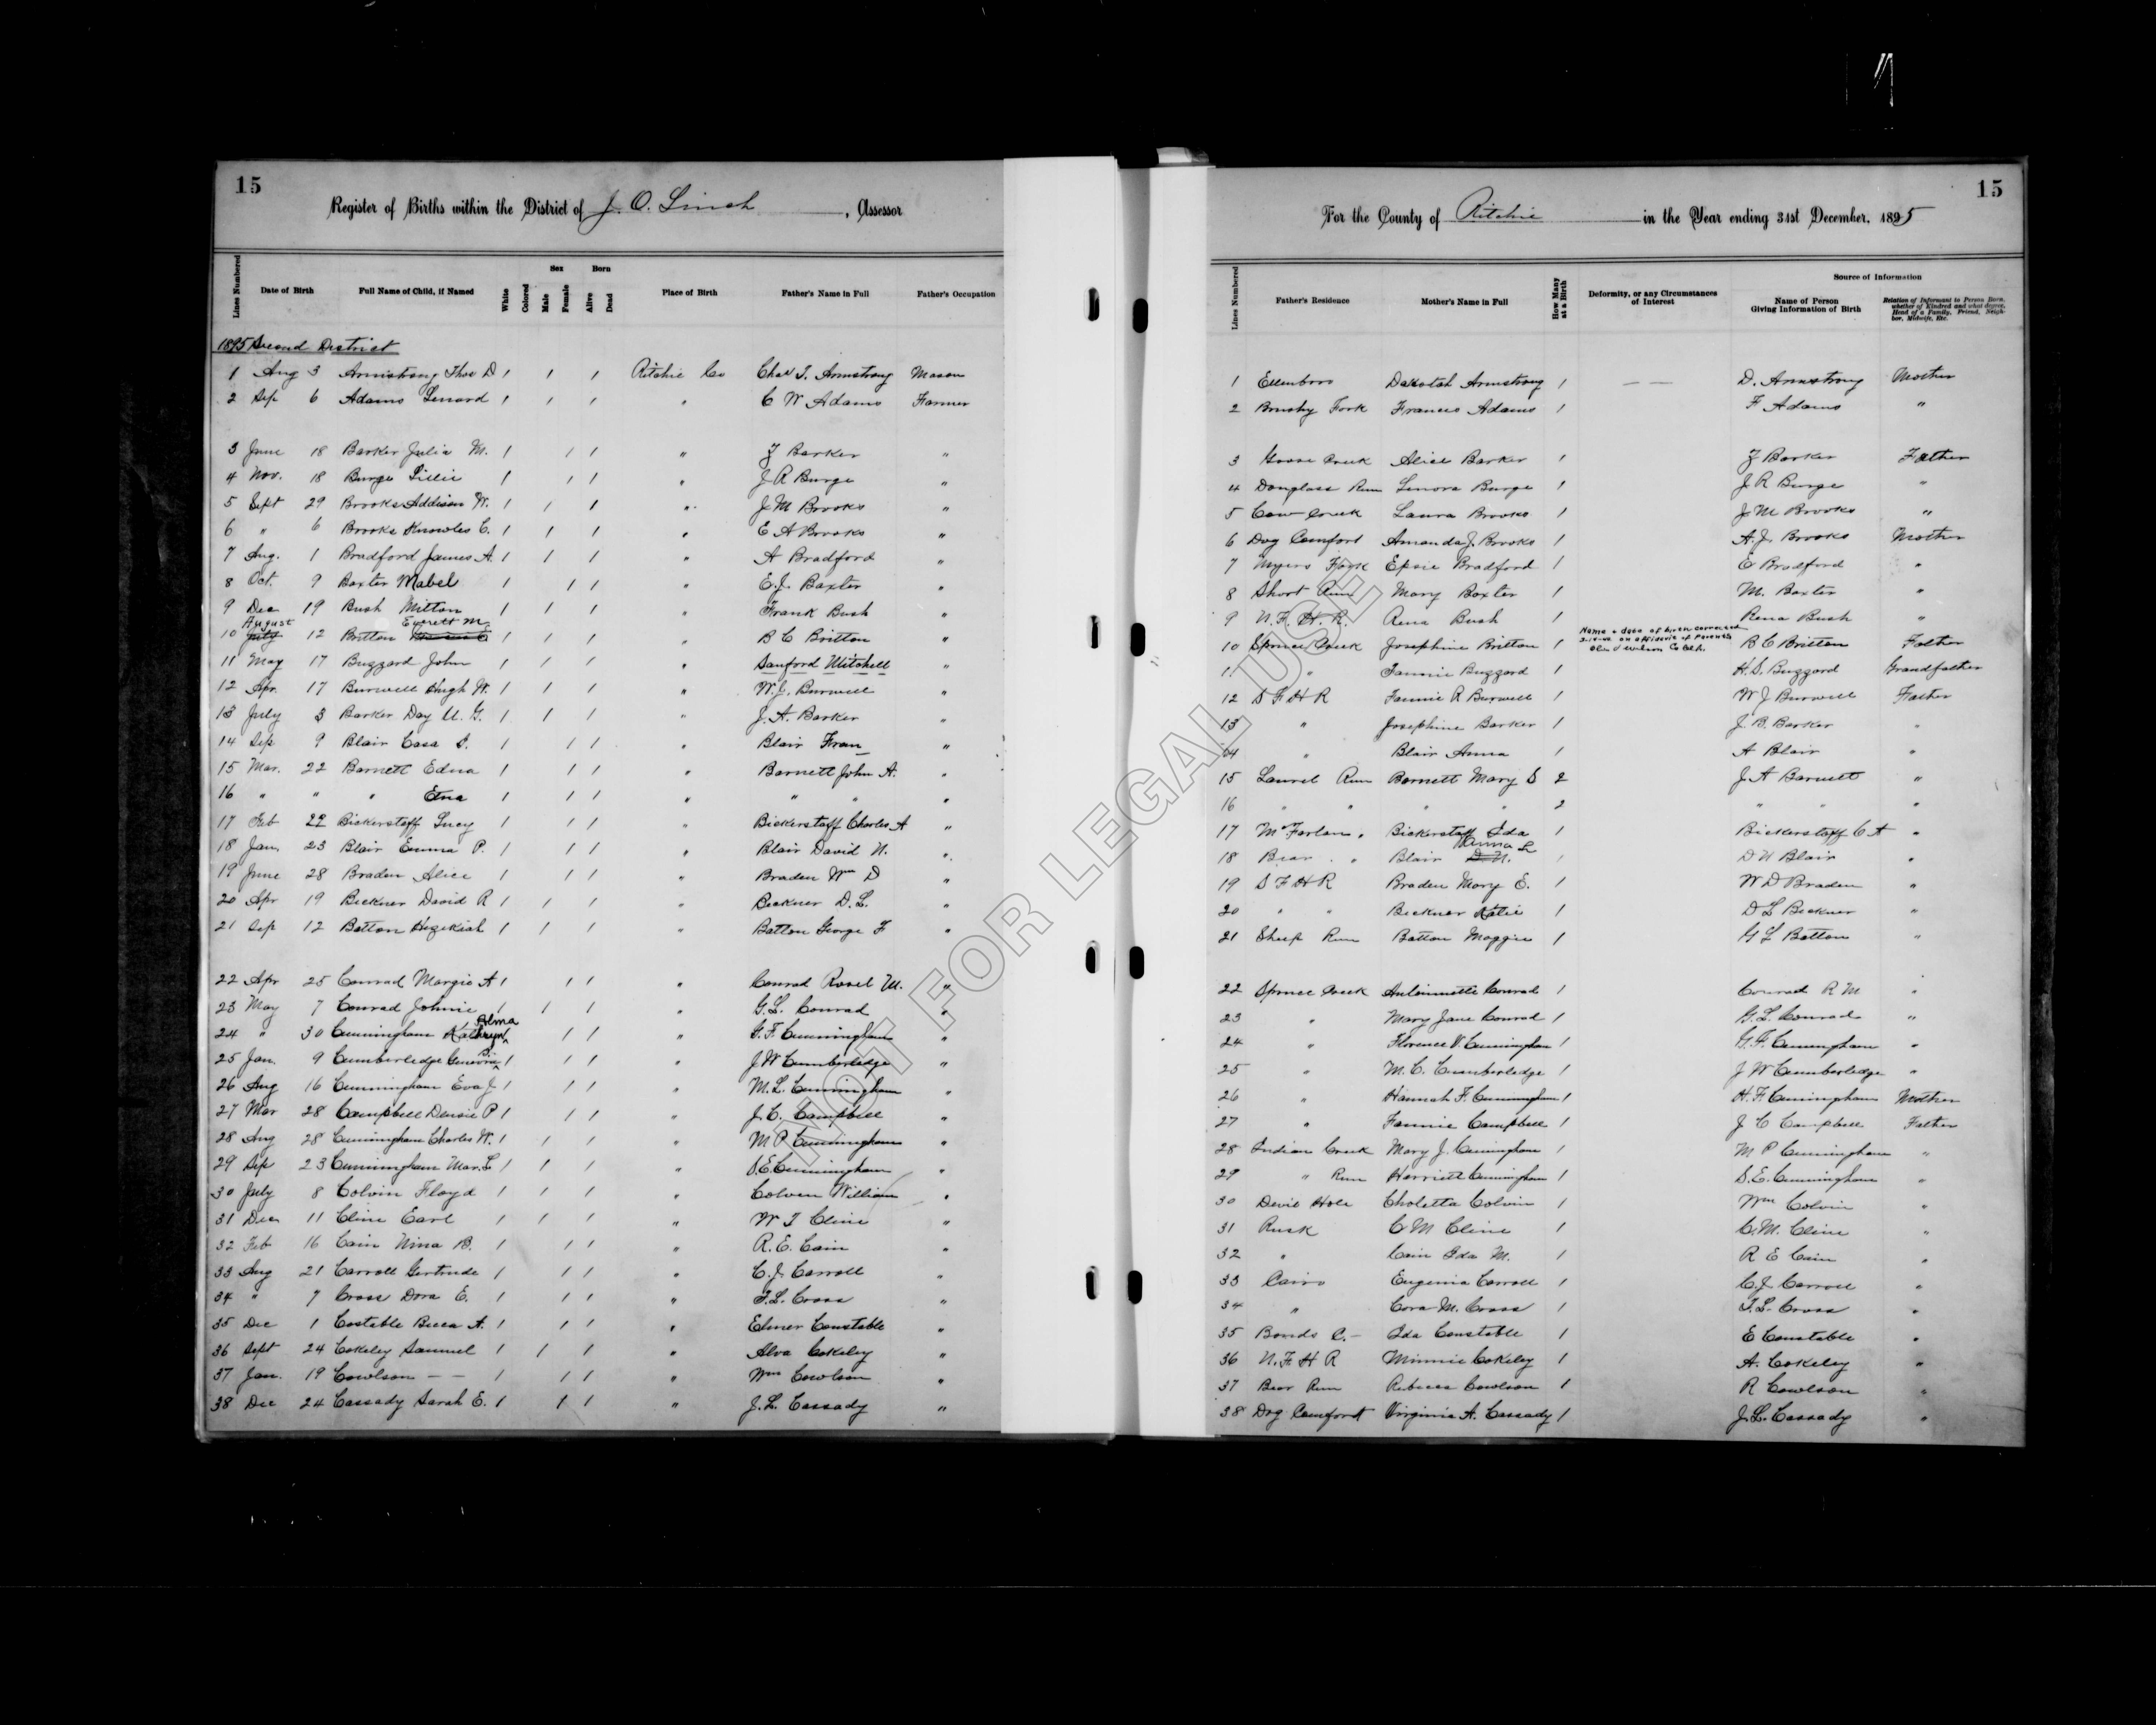 15
Register of Births within the District of J. O. Linch, Assessor
Lines Numbered
Date of Birth
Full Name of Child, if Named
White
Colored
Sex
Male
Female
Born
Alive
Dead
Place of Birth
Father's Name in Full
Father's Occupation
1895 Second District
1 Aug 3 Armstrong Thos D 1 1 1 Ritchie Co Chas T. Armstrong Mason
2 Sep 6 Adams Lenard 1 1 1 " C W Adams Farmer
3 June 18 Barker Julia M. 1 1 1 " Z Barker "
4 Nov. 18 Burge Lillie 1 1 1 " J R Burge "
5 Sept 29 Brooks Addison W. 1 1 1 " J M Brooks "
6 " 6 Brooks Knowles C. 1 1 1 " E A Brooks "
7 Aug. 1 Bradford James A. 1 1 1 " A Bradford "
8 Oct. 9 Baxter Mabel 1 1 1 " E. J. Baxter "
9 Dec 19 Bush Milton 1 1 1 " Frank Bush "
August Everett M.
10 July 12 Britton 1 1 1 " B C Britton "
11 May 17 Buzzard John 1 1 1 " Sanford Mitchell "
12 Apr. 17 Burwell Hugh W. 1 1 1 " W. J. Burwell "
13 July 3 Barker Day U. G. 1 1 1 " J. A. Barker "
14 Sep 9 Blair Casa D. 1 1 1 " Blair Fran "
15 Mar. 22 Barnett Edna 1 1 1 " Barnett John A. "
16 " " " Etna 1 1 1 " " " "
17 Feb 22 Bickerstaff Lucy 1 1 1 " Bickerstaff Charles A "
18 Jan. 23 Blair Emma P. 1 1 1 " Blair David N. "
19 June 28 Braden Alice 1 1 1 " Braden Wm D "
20 Apr 19 Bickner David R 1 1 1 " Bickner D. L. "
21 Sep 12 Batton Hezekiah 1 1 1 " Batton George F "
22 Apr 25 Conrad Margie A 1 1 1 " Conrad Rosel M. "
23 May 7 Conrad Johnie 1 1 1 " G. L. Conrad "
Alma
24 " 30 Cunningham Kathryn 1 1 1 " G. F. Cunningham "
B.
25 Jan. 9 Cumberledge Genevra 1 1 1 " J W Cumberledge "
26 Aug 16 Cunningham Eva J. 1 1 1 " M. L. Cunningham "
27 Mar 28 Campbell Densie P 1 1 1 " J. C. Campbell "
28 Aug 28 Cunningham Charles W. 1 1 1 " M P Cunningham "
29 Sep 23 Cunningham Mar. L 1 1 1 " S. E Cunningham "
30 July 8 Colvin Floyd 1 1 1 " Colven William "
31 Dec 11 Cline Earl 1 1 1 " W T Cline "
32 Feb 16 Cain Nina B. 1 1 1 " R. E. Cain "
33 Aug 21 Carroll Gertrude 1 1 1 " C. J. Carroll "
34 " 7 Cross Dora E. 1 1 1 " T. L. Cross "
35 Dec 1 Costable Becca A. 1 1 1 " Elmer Constable "
36 Sept 24 Cokeley Samuel 1 1 1 " Alva Cokeley "
37 Jan. 19 Cowlson — — 1 1 1 " Wm Cowlson "
38 Dec 24 Cassady Sarah E. 1 1 1 " J. L. Cassady "
15
For the County of Ritchie in the Year ending 31st December, 1895
Lines Numbered
Father's Residence
Mother's Name in Full
How Many at a Birth
Deformity, or any Circumstances of Interest
Source of Information
Name of Person Giving Information of Birth
Relation of Informant to Person Born, whether of Kindred and what degree, Head of a Family, Friend, Neighbor, Midwife, Etc.
1 Ellenboro Dakotah Armstrong 1 — — D. Armstrong Mother
2 Brushy Fork Frances Adams 1 F Adams "
3 Goose Creek Alice Barker 1 Z Barker Father
4 Douglass Run Lenora Burge 1 J R Burge "
5 Cow Creek Laura Brooks 1 J M Brooks "
6 Dog Comfort Amanda J. Brooks 1 A. J. Brooks Mother
7 Myers Fork Epsie Bradford 1 E Bradford "
8 Short Run Mary Baxter 1 M. Baxter "
9 N. F. H. R. Rena Bush 1 Rena Bush "
10 Spruce Creek Josephine Britton 1 Name & date of birth corrected on affidavit of Parents B C Britton Father
11 " Fannie Buzzard 1 H. S. Buzzard Grandfather
12 S F H R Fannie R Burwell 1 W J Burwell Father
13 " Josephine Barker 1 J. B. Barker "
14 " Blair Anna 1 A Blair "
15 Laurel Run Barnett Mary S 2 J A Barnett "
16 " " " " 2 " " "
17 McFarlan " Bickerstaff Ida 1 Bickerstaff C A "
18 Bear " Blair D. N. 1 D N Blair "
19 S F H R Braden Mary E. 1 W D Braden "
20 " " Bickner Katie 1 D L Bickner "
21 Sheep Run Batton Maggie 1 G L Batton "
22 Spruce Creek Antoinnette Conrad 1 Conrad R M "
23 " Mary Jane Conrad 1 G. L. Conrad "
24 " Florence V. Cunningham 1 G. F. Cunningham "
25 " M. C. Cumberledge 1 J W Cumberledge "
26 " Hannah F. Cunningham 1 H. F. Cunningham Mother
27 " Fannie Campbell 1 J C Campbell Father
28 Indian Creek Mary J. Cunningham 1 M P Cunningham "
29 " Run Harriett Cunningham 1 S. E. Cunningham "
30 Devil Hole Choletta Colvin 1 Wm Colvin "
31 Rusk C M Cline 1 C. M. Cline "
32 " Cain Ida M. 1 R E Cain "
33 Cairo Eugenia Carroll 1 C. J. Carroll "
34 " Cora M. Cross 1 T. L. Cross "
35 Bonds C. – Ida Constable 1 E Constable "
36 N. F. H R Minnie Cokeley 1 A. Cokeley "
37 Bear Run Rebecca Cowlson 1 R Cowlson "
38 Dog Comfort Virginia A. Cassady 1 J. L. Cassady "
NOT FOR LEGAL USE